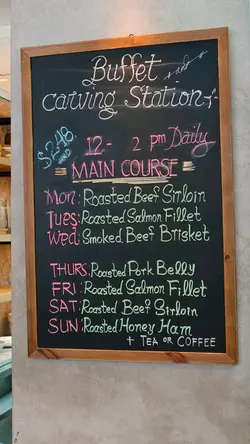 Buffet and
carving Station
$248
12 - 2 pm Daily
MAIN COURSE
Mon: Roasted Beef Sirloin
Tues: Roasted Salmon Fillet
Wed: Smoked Beef Brisket
THURS: Roasted Pork Belly
FRI: Roasted Salmon Fillet
SAT: Roasted Beef Sirloin
SUN: Roasted Honey Ham
+ TEA OR COFFEE